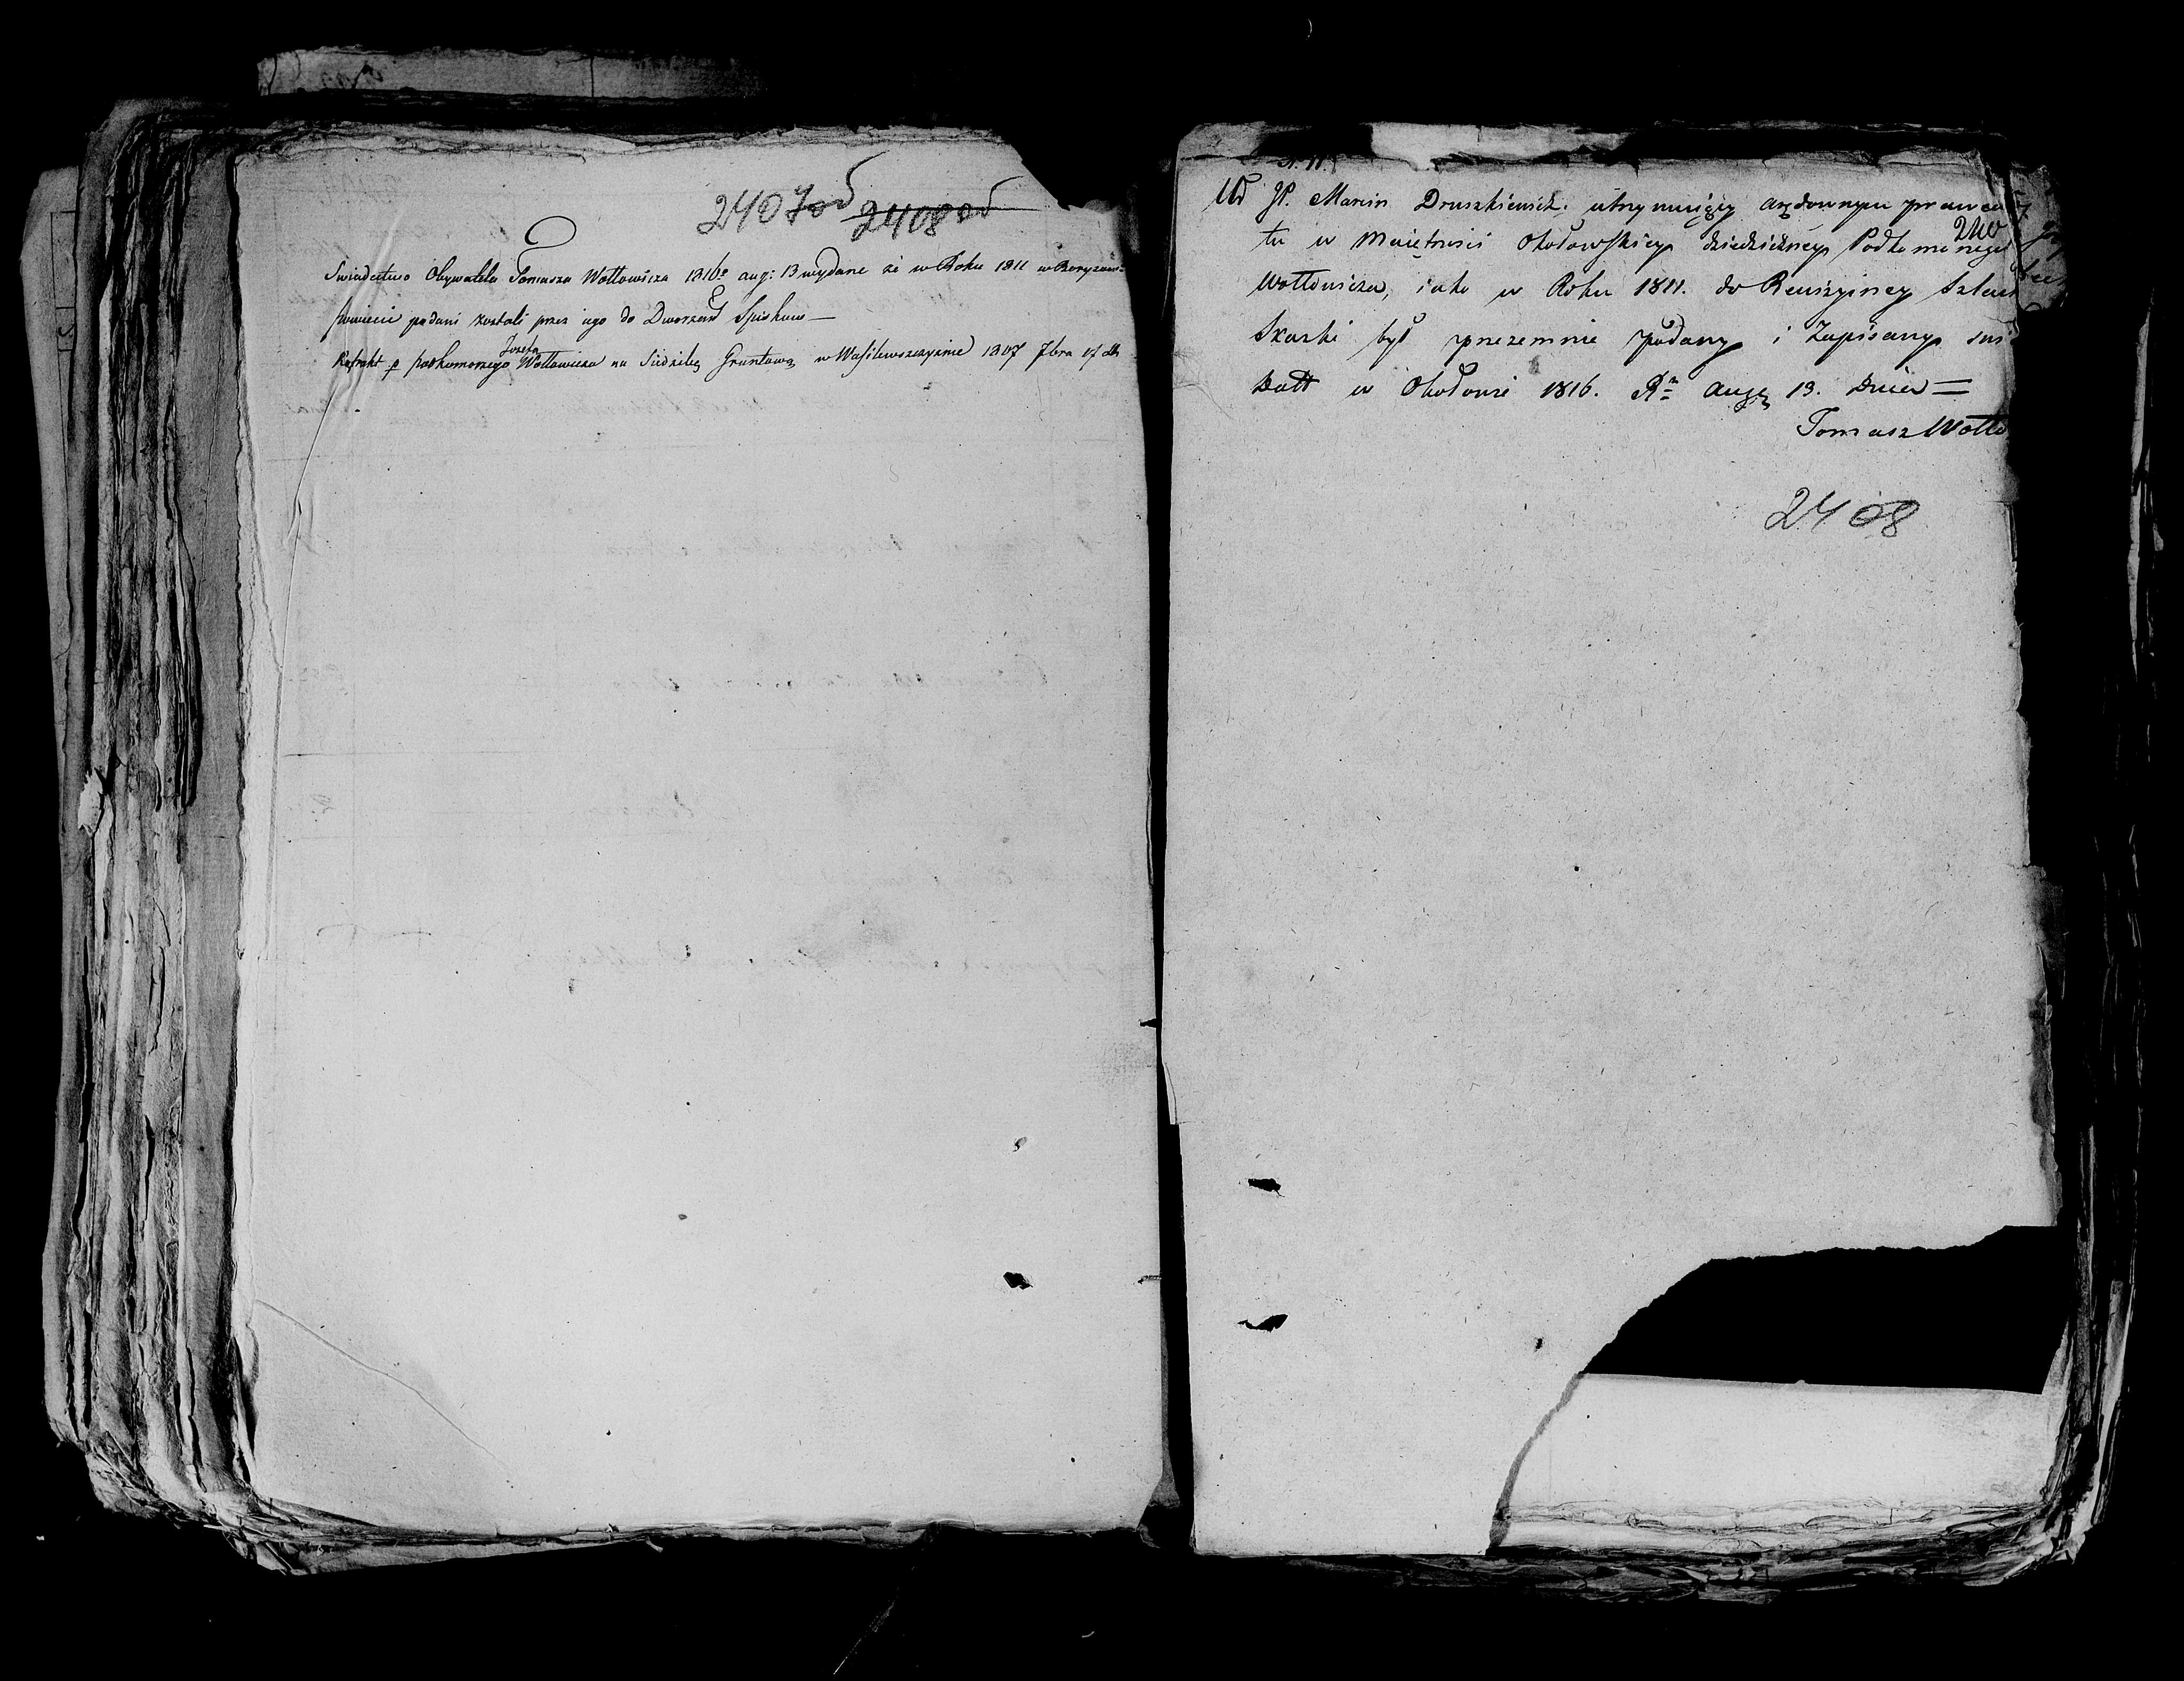 2407об 2408об
Swiadectwo Obywatela Tomasza Wołłowicza 1816o aug: 13 wydane że w Roku 1811 w Boryzow:
powiecie podani zostali przez iego do Dworzań Spiskow —
Kontrakt p podkomorzego Józefa Wołłowicza na Siedzibę Gruntową w Wasilewszczyznie 1807 7bra 17 db
N. 11.
WJP. Marcin Druszkiewicz utrzymuiący arędownym prawem
tu w Maiętnosci Okołowskiey dziedziczney Podkomorzego
Wołłowicza, iako w Roku 1811. do Rewizyiney Szlach
Skaski był przezemnie podany i Zapisany
Datt w Okołowie 1816. Ru Aug 13. Dnia =
Tomasz Wołło
2408